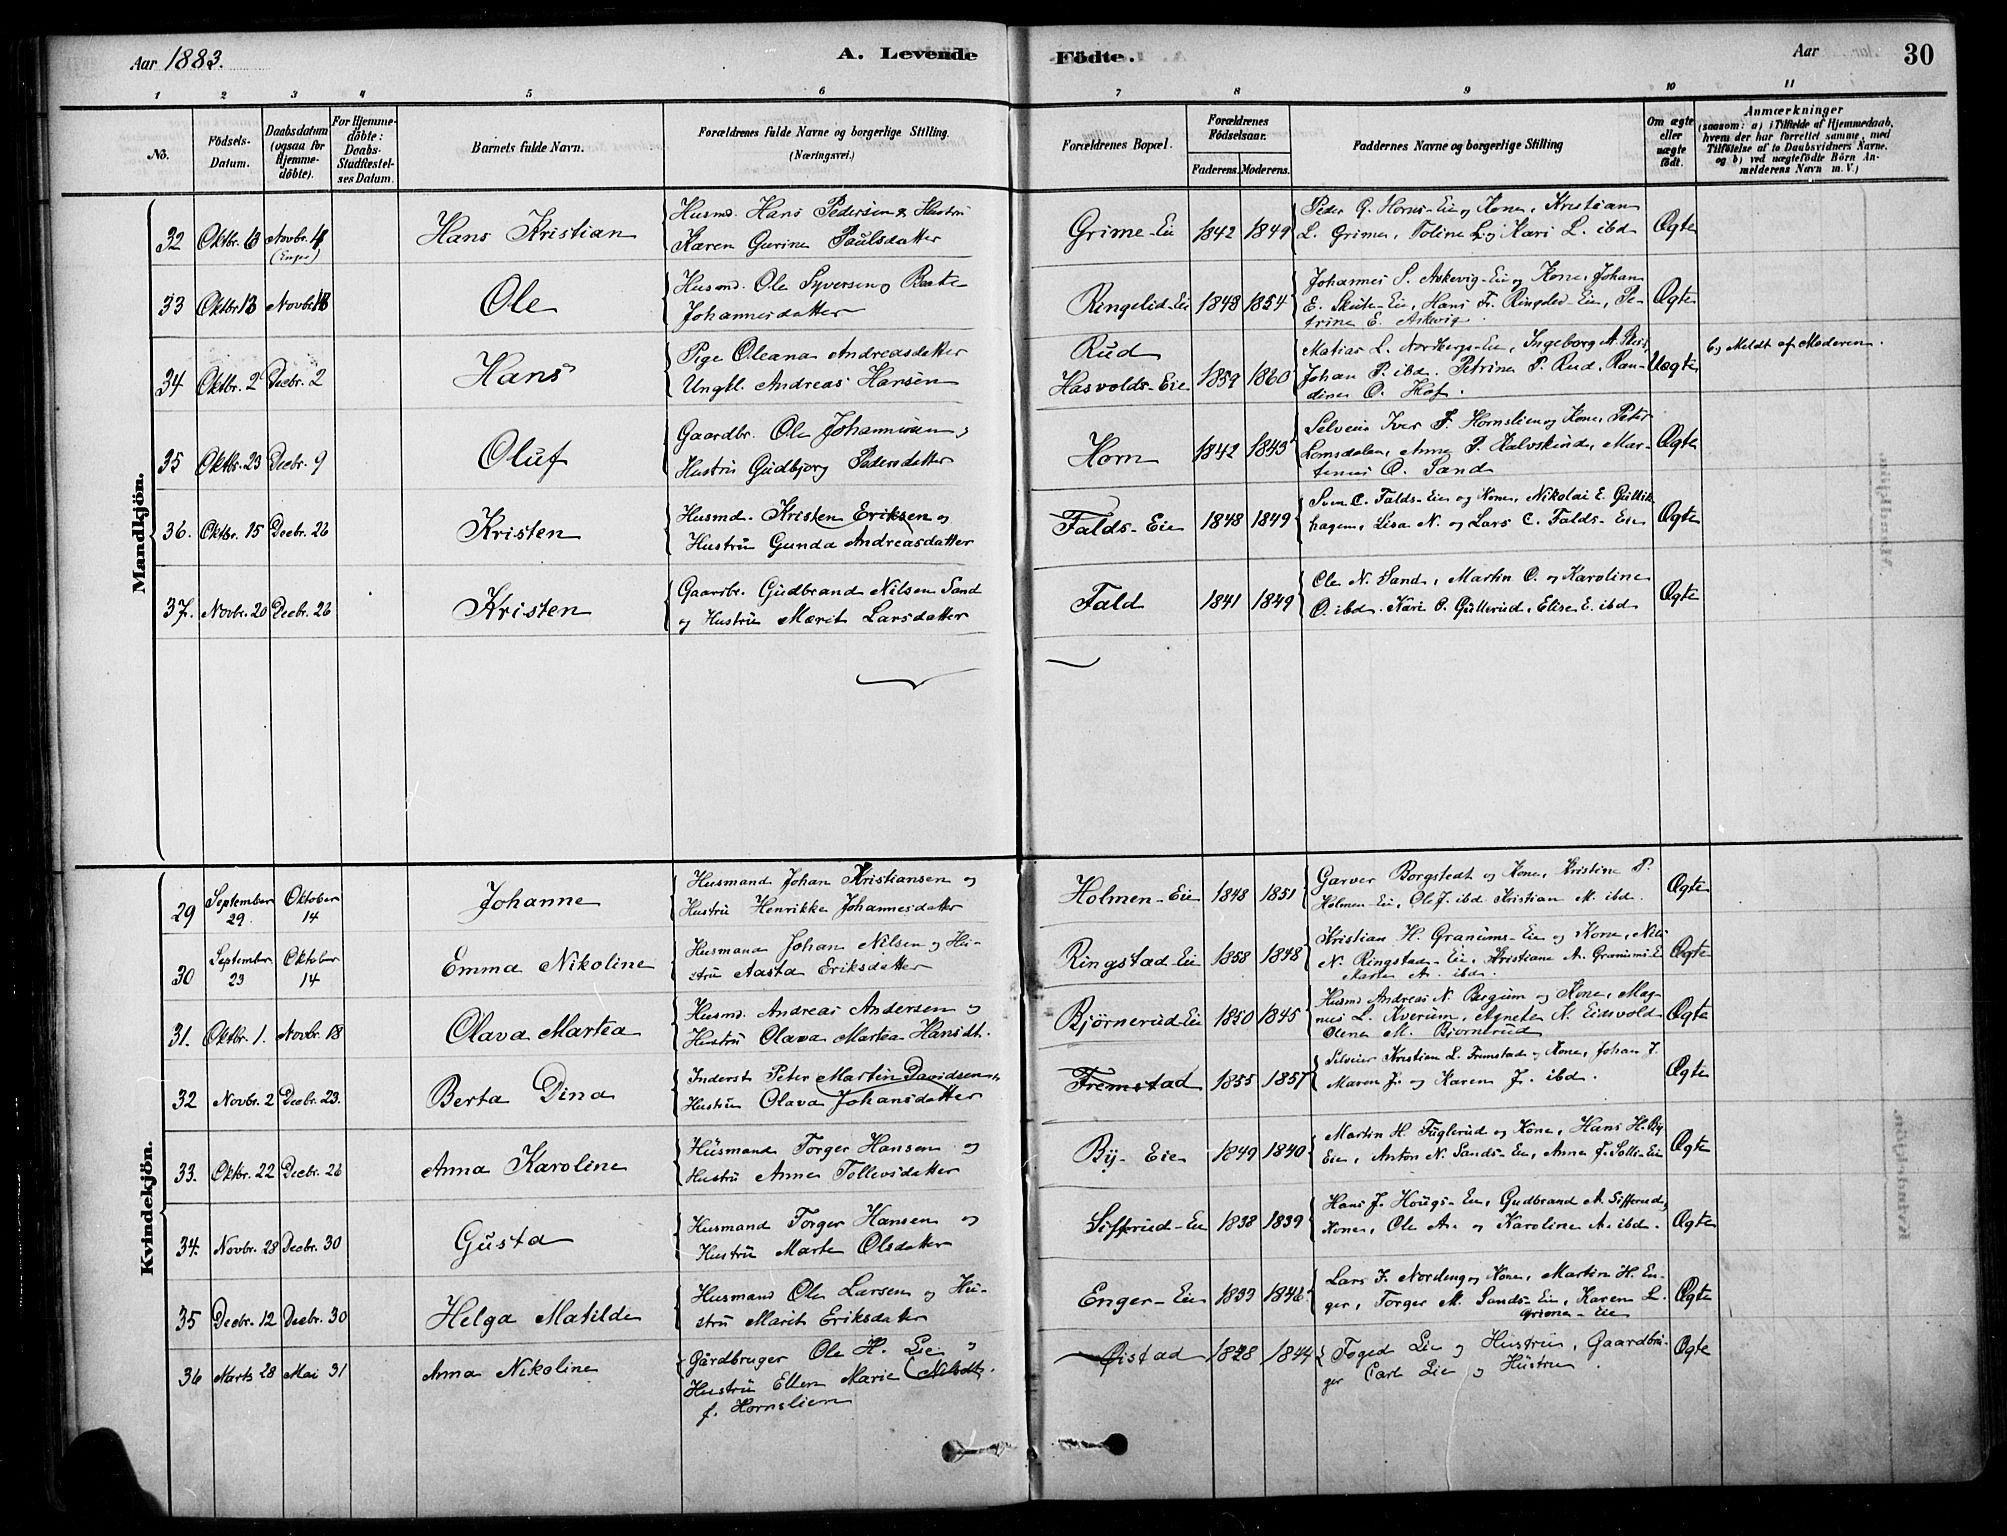 Aar 1883. A. Levende Födte. Aar 30
1 2 3 4 5 6 7 8 9 10 11
No. Födsels-Datum. Daabsdatum (ogsaa for Hjemme-döbte). For Hjemme-döbte: Daabs-Stadfæstel-ses Datum. Barnets fulde Navn. Forældrenes fulde Navne og borgerlige Stilling. (Næringsvei.) Forældrenes Bopæl. Forældrenes Födselsaar. Faderens. Moderens. Faddernes Navne og borgerlige Stilling Om ægte eller uægte födt. Anmærkninger (saasom: a) i Tilfælde af Hjemmedaab, hvem der har forrettet samme, med Tilföielse af to Daabsvidners Navne, og b) ved uægtefödte Börn An-melderens Navn m. V.)
Mandkjön.
32 Oktbr. 13 Novbr. 4 (Enger) Hans Kristian Husmd. Hans Pedersen & Hustru
Karen Gurine Paulsdatter Grime-Eie 1842 1849 Peder G. Horns-Eie og Kone, Kristian
L. Grimen, Toline L. og Kari L. ibd Ægte
33 Oktbr. 13 Novbr. 18 Ole Husmd. Ole Syversen og Beate
Johannesdatter Ringelid-Eie 1843 1854 Johannes S. Askevig-Eie og Kone, Johan
E. Skute-Eie, Hans Fr. Ringelid-Eie, Pe-
trine E. Askevig. Ægte
34 Oktbr. 2 Decbr. 2 Hans Pige Oleana Andreasdatter
Ungkl. Andreas Hansen Rud
Hasvolds-Eie 1859 1860 Matias L. Norbergs-Eie, Ingeborg A.
Johan P. ibd. Petrine P. Rud, Ran-
dine O. Hof. Uægte b) Meldt af Moderen.
35 Oktbr. 23 Decbr. 9 Oluf Gaardbr. Ole Johannesen &
Hustru Gudbjorg Pedersdatter Horn 1842 1843 Selveier Iver F. Hornslien og Kone, Peter
Lomsdalen, Anne P. Kalvskind, Mar-
tinus O. Sand Ægte
36. Oktbr. 15 Decbr. 26 Kristen Husmd. Kristen Eriksen og
Hustru Gunda Andreasdatter Falds-Eie 1848 1849 Sven C. Falds-Eie og Kone, Nikolai E. Gullik-
hagen, Lisa N. og Lars C. Falds-Eie Ægte
37. Novbr. 20 Decbr. 26 Kristen Gaardbr. Gudbrand Nilsen Sand
og Hustru Marit Larsdatter Fald 1841 1849 Ole N. Sand, Martin O. og Karoline
O. ibd. Kari O. Gullerud, Elise E. ibd Ægte
Kvindekjön.
29 September 29. Oktober 14 Johanne Husmand Johan Kristiansen og
Hustru Henrikke Johannesdatter Holmen-Eie 1848 1851 Garver Borgstedt og Kone, Kristine P.
Holmen-Eie, Ole J. ibd Kristian M. ibd. Ægte
30 September 23 Oktober 14 Emma Nikoline Husmand Johan Nilsen og Hu-
stru Aasta Eriksdatter Ringstad-Eie 1858 1848 Kristian H. Granums-Eie og Kone, Nils
N. Ringstad-Eie, Kristiane A. Granums-E
Maren A. ibd. Ægte
31. Oktbr. 1. Novbr. 18 Olava Martea Husmd. Andreas Andersen og
Hustru Olava Martea Hansdt. Bjørnerud-Eie 1850 1845 Husmd Andreas N. Bergum og Kone, Mag-
nus L. Kverum, Agnete N. Eidsvold
Olena M. Bjørnerud Ægte
32 Novbr. 2 Decbr. 23. Berta Dina Inderst Peter Martin Davidsen &
Hustru Olava Johansdatter Fremstad 1855 1857 Selveier Kristian L. Fremstad og Kone, Johan J.
Maren J. og Karen J. ibd. Ægte
33. Oktbr. 22 Decbr. 26 Anna Karoline Husmand Torger Hansen og
Hustru Anne Tollevsdatter By-Eie 1849 1840 Martin H. Fuglerud og Kone, Hans H. By
Eie, Anton N. Sands-Eie, Anne J. Solli-Eie Ægte
34. Novbr. 28 Decbr. 30 Gusta Husmand Torger Hansen og
Hustru Marte Olsdatter Siffrud-Eie 1838 1839 Hans J. Hougs-Eie, Gudbrand A. Siffrud &
Kone, Ole A. og Karoline A. ibd. Ægte
35 Decbr. 12 Decbr. 30 Helga Matilde Husmand Ole Larsen og Hu-
stru Marit Eriksdatter Enger-Eie 1833 1846 Lars F. Nordeng og Kone, Martin H. En-
ger, Torger M. Sands-Eie, Karen L.
Grime-Eie Ægte
36 Marts 28 Mai 31 Anna Nikoline Gårdbruger Ole H. Lie og
Hustru Ellen Marie Nilsdt.
f. Hornslien Øistad 1828 1844 Foged Lie og Hustru, Gaardbru-
ger Carl Lie og Hustru. Ægte